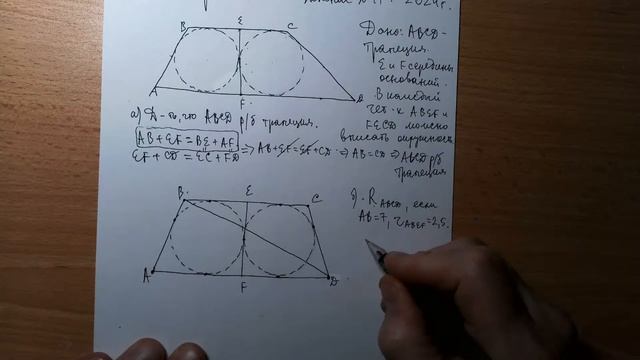 2024г.
B E C
A F D
Дано: ABCD-
трапеция.
E и F середины
оснований.
В каждый
чет-к ABEF и
FECD можно
вписать окружность
а) Д-ть, что ABCD р/б трапеция.
AB+EF=BE+AF
EF+CD=EC+FD ⇒ AB+EF=EF+CD ⇒ AB=CD ⇒ ABCD р/б
трапеция
B E C
A F D
б)-R ABCD, если
AB=7, r ABEF=2,5.